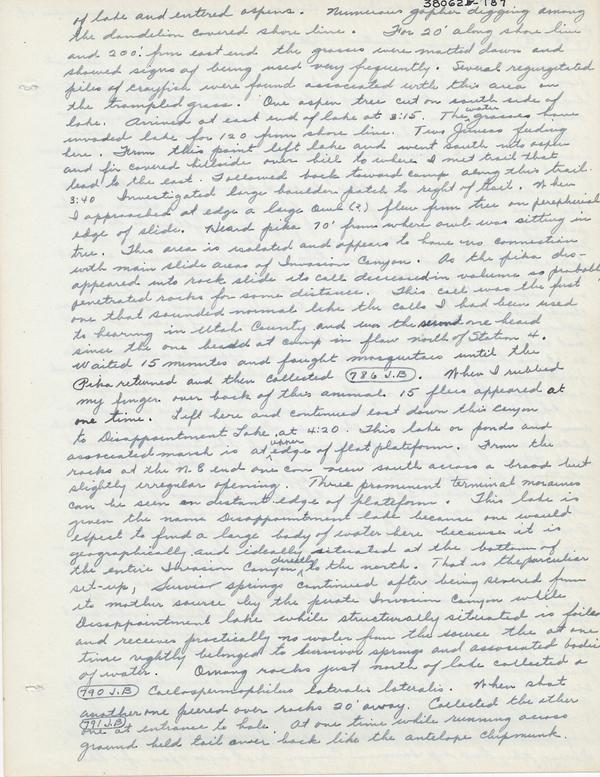 380628-187
of lake and entered aspens. Numerous gopher digging among
the dandelion covered shore line. For 20' along shore line
and 200' from east end the grasses were matted down and
showed signs of being used very frequently. Several regurgitated
piles of crayfish were found associated with this area on
the trampled grass. One aspen tree cut on south side of
lake. Arrived at east end of lake at 3:15. The water grasses have
invaded lake for 120 from shore line. Two Juncos feeding
here. From this point left lake and went south into aspen
and fir covered hillside over hill to where I met trail that
lead to the east. Followed back toward camp along this trail.
3:40 Investigated large boulder patch to right of trail. When
I approached at edge a large Owl (?) flew from tree on peripherial
edge of slide. Heard pika 70' from where owl was sitting in
tree. This area is isolated and appears to have no connection
with main slide areas of Invasion Canyon. As the pika dis-
appeared into rock slide its call decreased in volume so probably
penetrated rocks for some distance. This call was the first
one that sounded normal like the calls I had been used
to hearing in Utah County and was the second one heard
since the one heard at camp in flow north of Station 4.
Waited 15 minutes and fought mosquetoes until the
Pika returned and then collected 786 J.B. When I rubbed
my finger over back of this animal 15 flies appeared at
one time. Left here and continued east down this canyon
to Disappointment Lake at 4:20. This lake or ponds and
associated marsh is at upper edge of flat platform. From the
rocks at the N.E end one can view south across a broad but
slightly irregular opening. Three prominent terminal moraines
can be seen on distant edge of plateform. This lake is
given the name Disappointment lake because one would
expect to find a large body of water here because it is
geographically and ideally situated at the bottom of
the entire Invasion Canyon directly to the north. That is the particular
set-up, Survivor springs continued after being severed from
its mother source by the pirate Invasion Canyon while
Disappointment lake while structurally situated is failed
and receives practically no water from the source the at one
time rightly belonged to Survivor springs and associated bodies
of water. Among rocks just north of lake collected a
790 J.B Callospermophilus lateralis lateralis. When shot
another one peered over rocks 20' away. Collected the other
791 J.B
one at entrance to hole. At one time while running across
ground held tail over back like the antelope chipmunk.